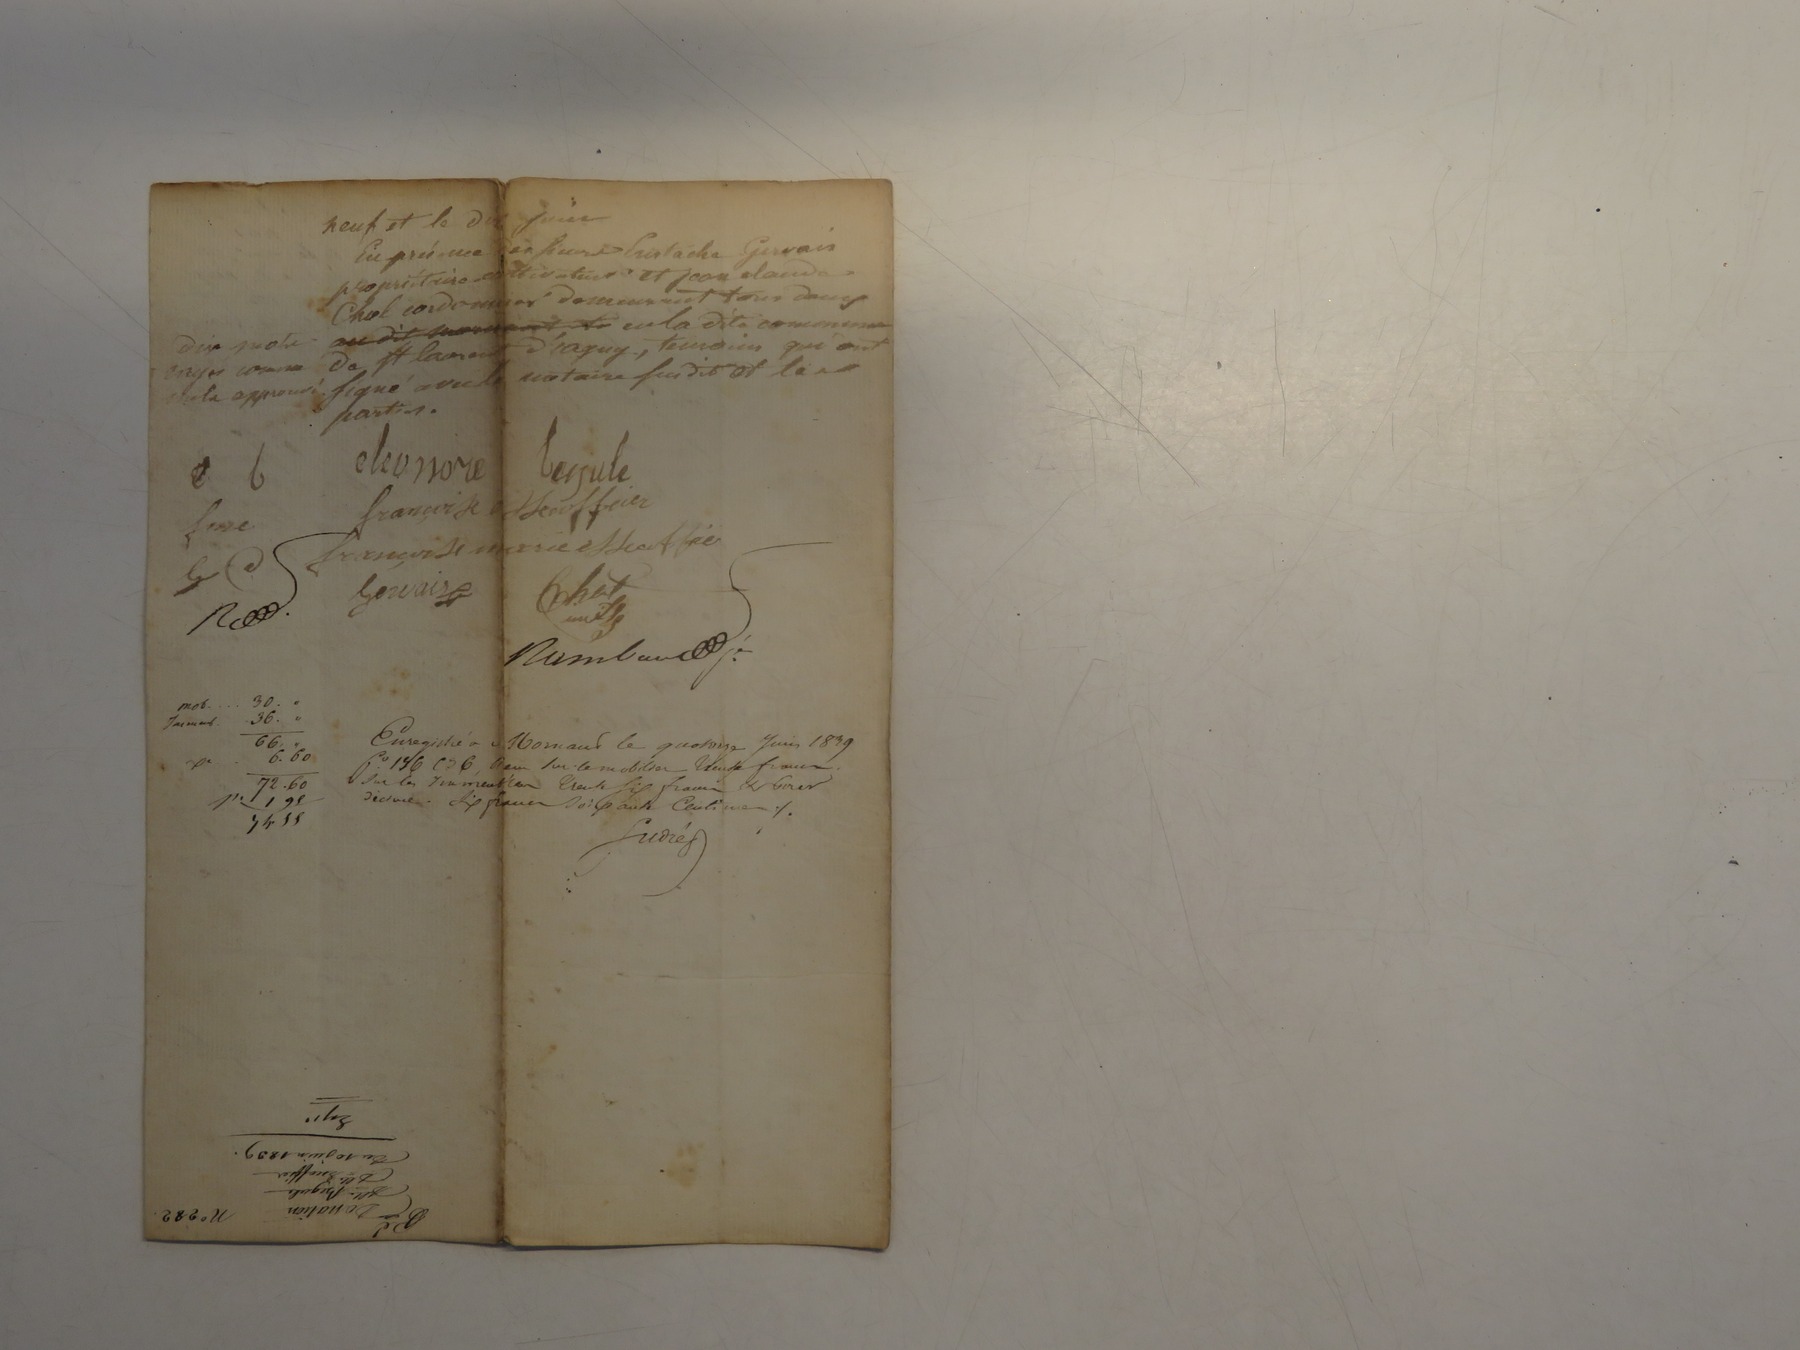 neuf et le dix juin
En présence de pierre Eustache Gervais
propriétaire cultivateur et jean claude
Chol cordonnier demeurant tous deux
au dit en la dite commune
de St laurent d'agny, témoins qui ont
signé avec le notaire susdit et les
parties.
dix mots
rayés comme
nuls approuvé
e b eleonore begule
françoise esscoffier
françoise marie esscoffier
Gervais Chol
Rambaud je
mob. ... 30. "
Immeub. 36. "
66. "
6. 60
72. 60
1 95
74 55
Enregistré à Mornant le quatorze Juin 1839
f° 136 C 6, Reçu sur le mobilier trente francs.
Sur les Immeubles trente six francs et pour
décime. Six francs soixante Centimes ./.
N° 282.
Donation
Dlle Begule
Dlle Escoffier
Du 10 juin 1839.